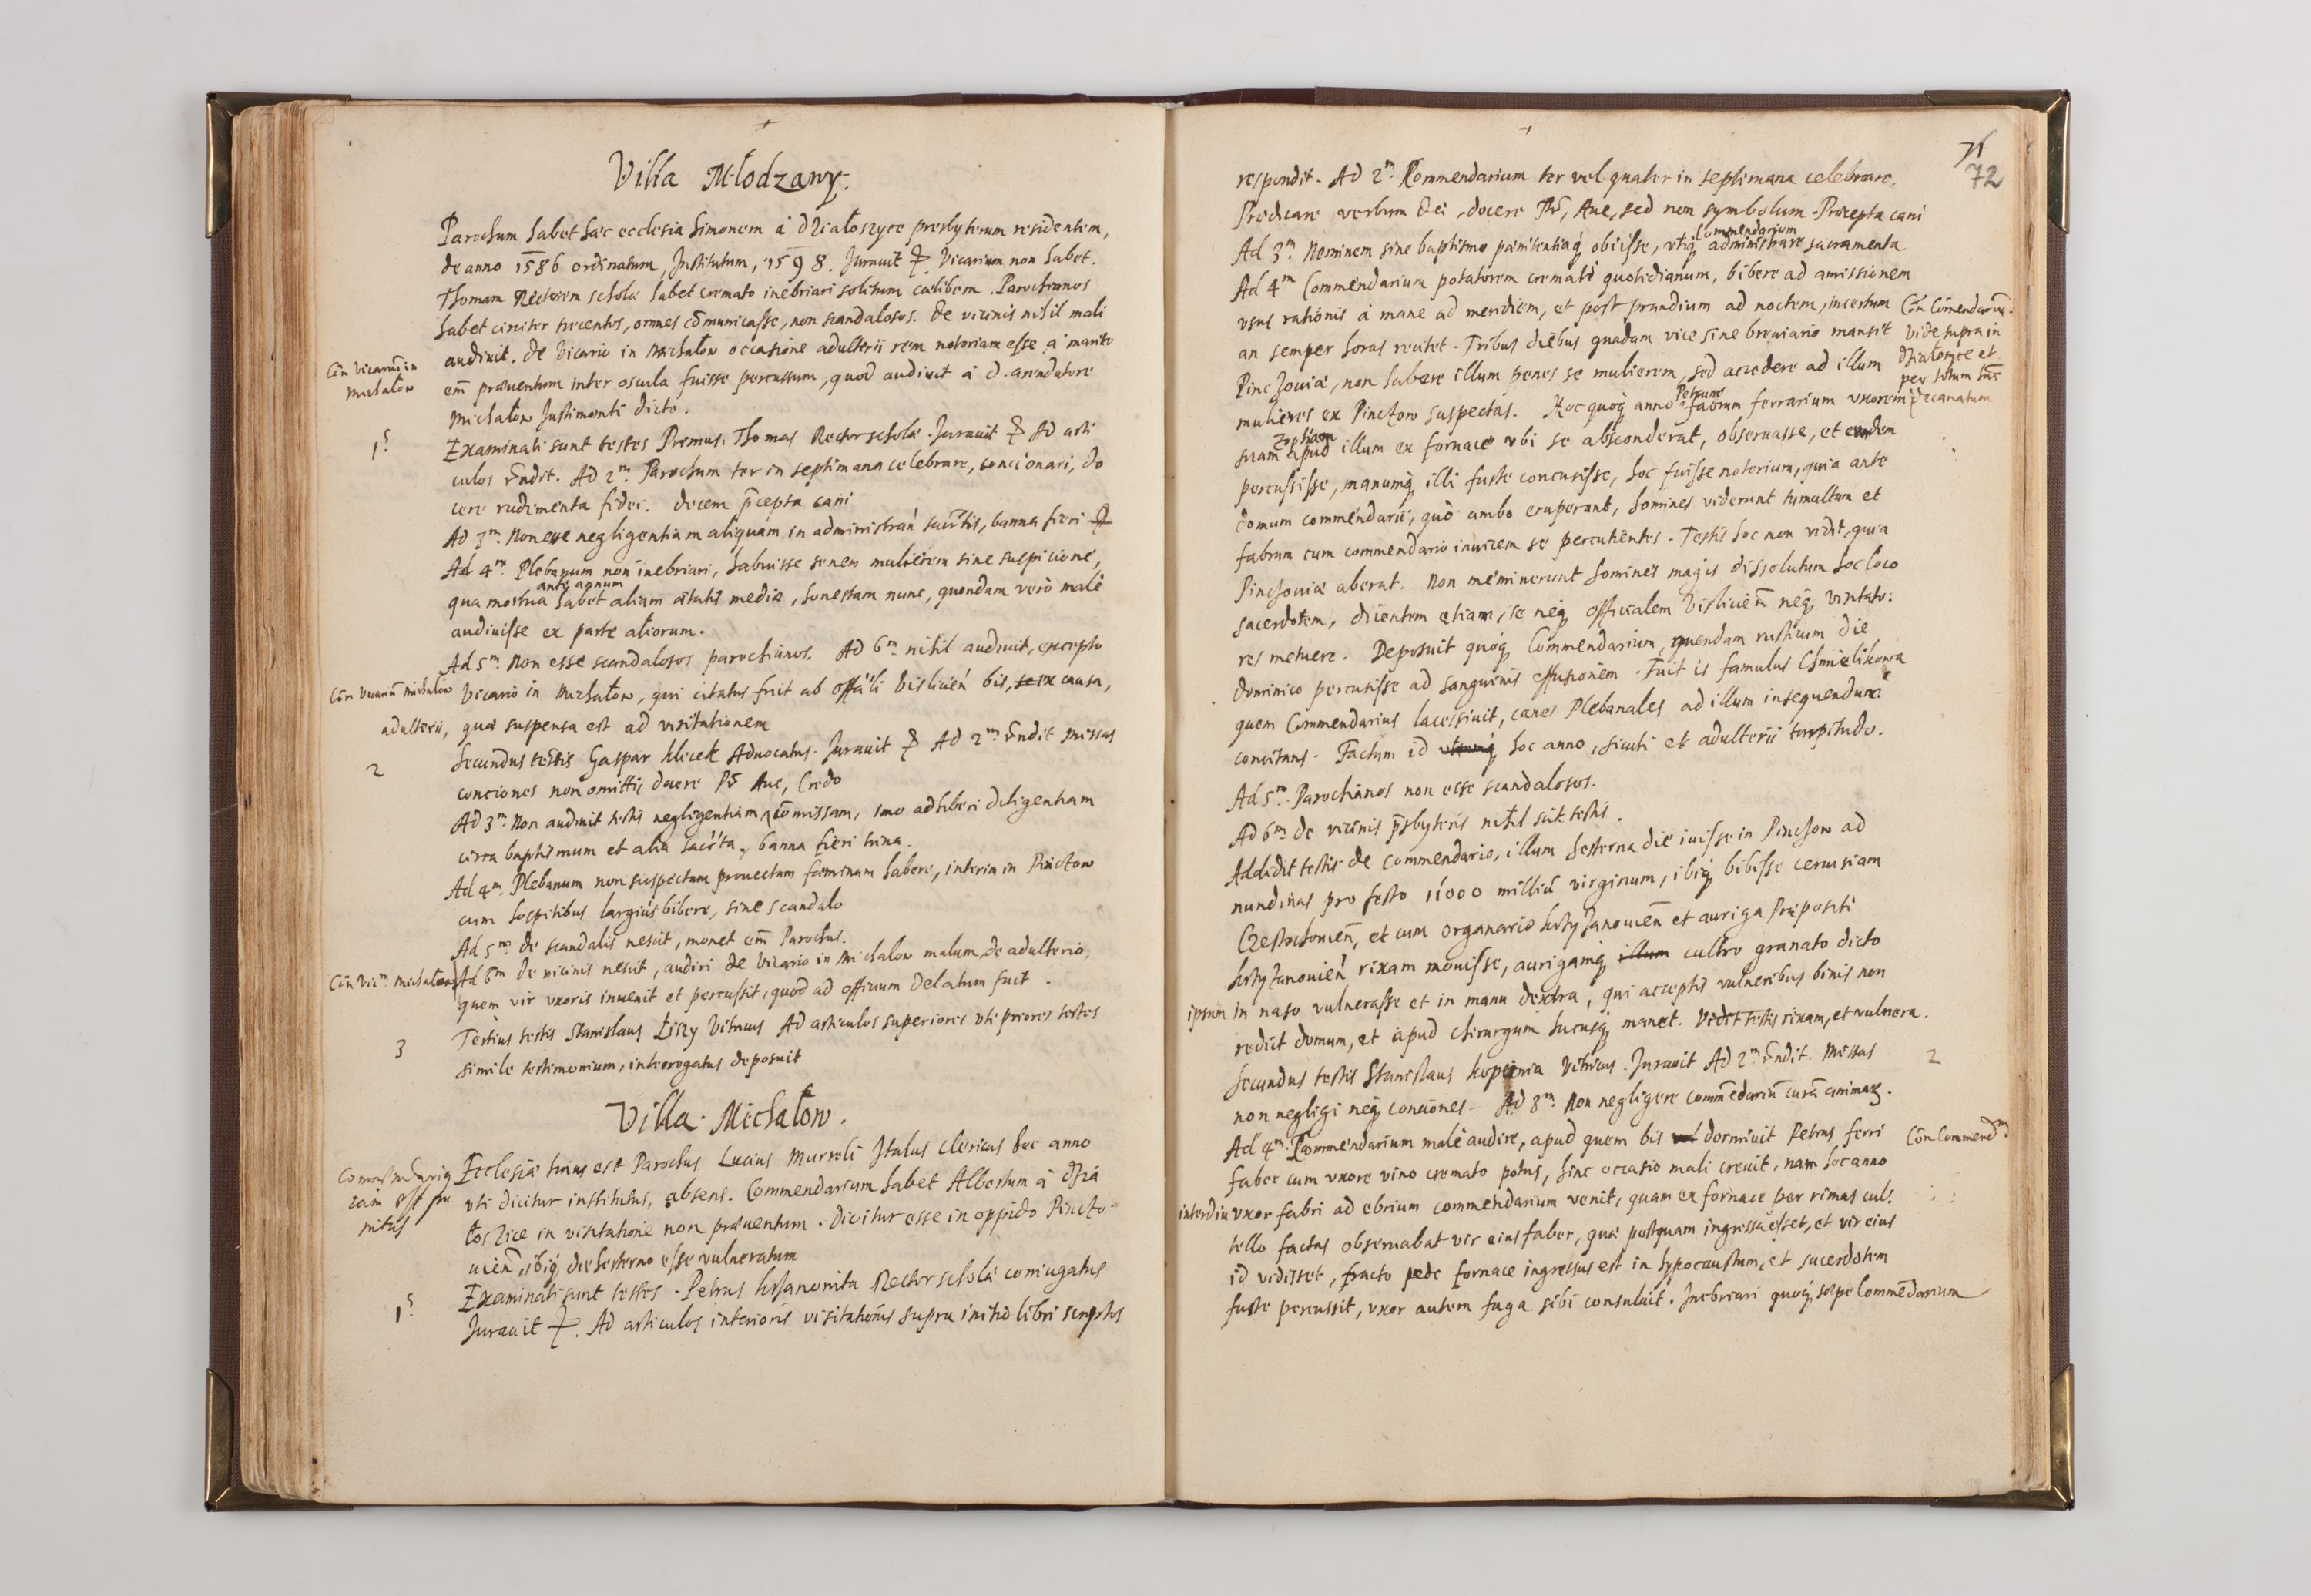 Villa Młodzawy.
Parochum habet haec ecclesia Simonem à Dzialoszyce presbyterum residentem,
de anno 1586 ordinatum, Institutum, 1598. Jurauit ꝑ. Vicarium non habet.
Thomam Rectorem scholae habet cremato inebriari solitum caelibem. Parochianos
habet circiter trecentos, omnes cōmunicasse, non scandalosos. De vicinis nihil mali
audiuit. De Vicario in Michałow occasione adulterii rem notoriam esse, à marito
Cōn Vicariū in
Michałow
em̄ praeuentum inter oscula fuisse percussum, quod audiuit à D. arendatore
Michałow Justimonti dicto.
1s
Examinati sunt testes Primus, Thomas Rector scholae. Jurauit Ad arti
culos rn̄dit. Ad 2m. Parochum ter in septimana celebrare, concionari, do
cere rudimenta fidei. Decem p̄cepta cani
Ad 3m. Non esse negligentiam aliquam in administran̄ sacr̄tis, banna fieri
Ad 4m. Plebanum non inebriari, habuisse senem mulierem sine suspicione,
ante annum
qua mortua habet aliam aetatis mediae, honestam nunc, quondam verò malè
audiuisse ex parte aliorum.
Ad 5m. Non esse scandalosos parochianos. Ad 6m. nihil audiuit, excepto
Cōn Vicariū Michałow
Vicario in Michałow, qui citatus fuit ab offāli Vislicien̄ bis, ex causa,
adulterii, quae suspensa est ad visitationem
2
Secundus testis Gaspar Klicek Aduocatus. Jurauit Ad 2m. rn̄dit Missas
conciones non omitti, docere Pr̄ Aue, Credo
Ad 3m. Non audiuit testis negligentiam, cōmissam, imo adhiberi diligentiam
circa baptismum et alia sacr̄ta, banna fieri trina.
Ad 4m. Plebanum non suspectam prouectam faeminam habere, interim in Pinczow
cum hospitibus largius bibere, sine scandalo
Ad 5m. de scandalis nescit, monet em̄ Parochus.
Cōn Vicm Michałow
Ad 6m de vicinis nescit, audiri de Vicario in Michałow malum, de adulterio,
quem vir vxoris inuenit et percussit, quod ad officium delatum fuit.
3
Tertius testis Stanislaus Łisy Vitricus Ad articulos superiores vti priores testes
simile testimonium, interrogatus deposuit
Villa Michałow.
Ecclesiae huius est Parochus Lucius Murreli Italus clericus hoc anno
Commendarius
iam est pu
nitus
vti dicitur institutus, absens. Commendarium habet Albertum à Dzia
łoszice in visitatione non praeuentum. Dicitur esse in oppido Pinczo-
uien̄, ibiq; die hesterno esse vulneratum
1s
Examinati sunt testes. Petrus Rector scholae coniugatus
Jurauit. Ad articulos interioris visitationis supra initio libri scriptos
71
72
respondit. Ad 2m. Commendarium ter vel quater in septimana celebrare.
Praedicare verbum Dei, docere Pr̄, Aue, sed non symbolum. Praecepta cani
Commendarium
Ad 3m. Neminem sine baptismo paenitentiaq; obiisse, vtiq; administrare sacramenta
Ad 4m Commendarium potatorem cremati quotidianum, bibere ad amissionem
vsus rationis à mane ad meridiem, et post prandium ad noctem, incertum
Cōn Cōmendariū.
an semper horas recitet. Tribus diebus quadam vice sine breuiario mansit
Vide supra in
Pinczouiae, non habere illum penes se mulierem, sed accedere ad illum
Dzialoszyce et
per totum hūc
Decanatum
mulieres ex Pinczow suspectas. Hoc quoq; anno Petrum fabrum ferrarium vxorem
suam Zophiam apud illum ex fornace vbi se absconderat, obseruasse, et eandem
percussisse, manumq; illi fuste concussisse, hoc fuisse notorium, quia ante
domum commendarii, quò ambo eruperant, homines viderunt tumultum et
fabrum cum commendario inuicem se percutientes. Testis hoc non vidit, quia
Pinczouiae aberat. Non meminerunt homines magis dissolutum hoc loco
sacerdotem, dicentem etiam, se neq; officialem Vislicien̄ neq; visitato:
res metuere. Deposuit quoq; Commendarium, quendam rusticum die
dominico percussisse ad sanguinis effusionem. Fuit is famulus Chmielikowa
quem Commendarius lacessiuit, canes Plebanales ad illum insequendum
concitans. Factum id hoc anno, sicuti et adulterii turpitudo.
Ad 5m. Parochianos non esse scandalosos.
Ad 6m. de vicinis p̄sbyteris nihil scit testis.
Addidit testis de Commendario, illum hesterna die iuisse in Pinczow ad
nundinas pro festo 11000 milliū virginum, ibiq; bibisse ceruisiam
Czestochouien̄, et cum organario et auriga Praepositi
rixam mouisse, aurigamq; cultro granato dicto
ipsum in naso vulnerasse et in manu dextra, qui acceptis vulneribus binis non
rediit domum, et apud chirurgum hucusq; manet. Vidit testis rixam, et vulnera.
Secundus testis Stanislaus Kopcenia Vitricus. Jurauit Ad 2m. rn̄dit. Missas
2
non negligi neq; conciones. Ad 3m. Non negligere commēdariū curā animaꝝ.
Ad 4m. Commendarium malè audire, apud quem bis dormiuit Petrus ferri
Cōn Commendm.
faber cum vxore vino cremato potus, hinc occasio mali creuit, nam hoc anno
interdiu vxor fabri ad ebrium commendarium venit, quam ex fornace per rimas cul:
tello factas obseruabat vir eius faber, quae postquam ingressa esset, et vir eius
id vidisset, fracto pede fornace ingressus est in hypocaustum, et sacerdotem
fuste percussit, vxor autem fuga sibi consuluit. Inebriari quoq; saepe Commēdarium